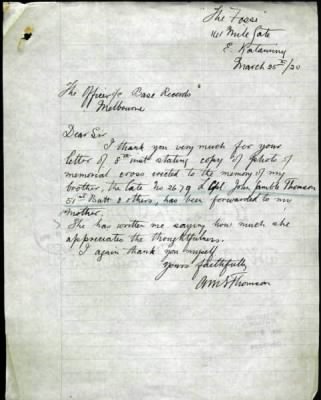 "The Fosse"
161 Mile Gate
E. Katanning
March 25th/20
The Officer i/c Base Records"
Melbourne
Dear Sir
I thank you very much for your
letter of 5th inst stating copy of photo of
memorial cross erected to the memory of my
brother, the late No. 2679 L/Cpl. John Gamble Thomson
51st Batt & others, has been forwarded to my
mother.
She has written me saying how much she
appreciates the thoughtfulness.
I again thank you myself
Yours faithfully
Thomson